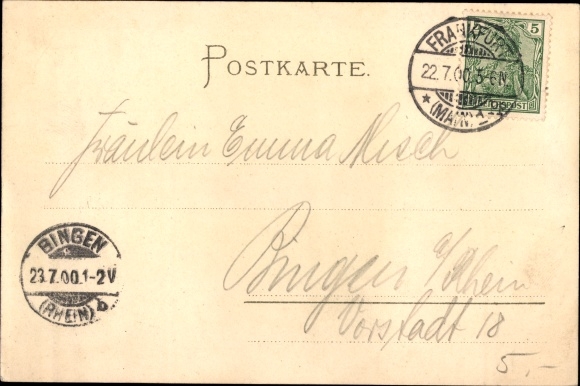 POSTKARTE.
FRANKFURT
22.7.00.5-6N
★ (MAIN) 1
5
REICHSPOST
Fräulein Emma Misch
Bingen a/Rhein
Vorstadt 18
BINGEN
23.7.00.1-2V
(RHEIN)
5.-